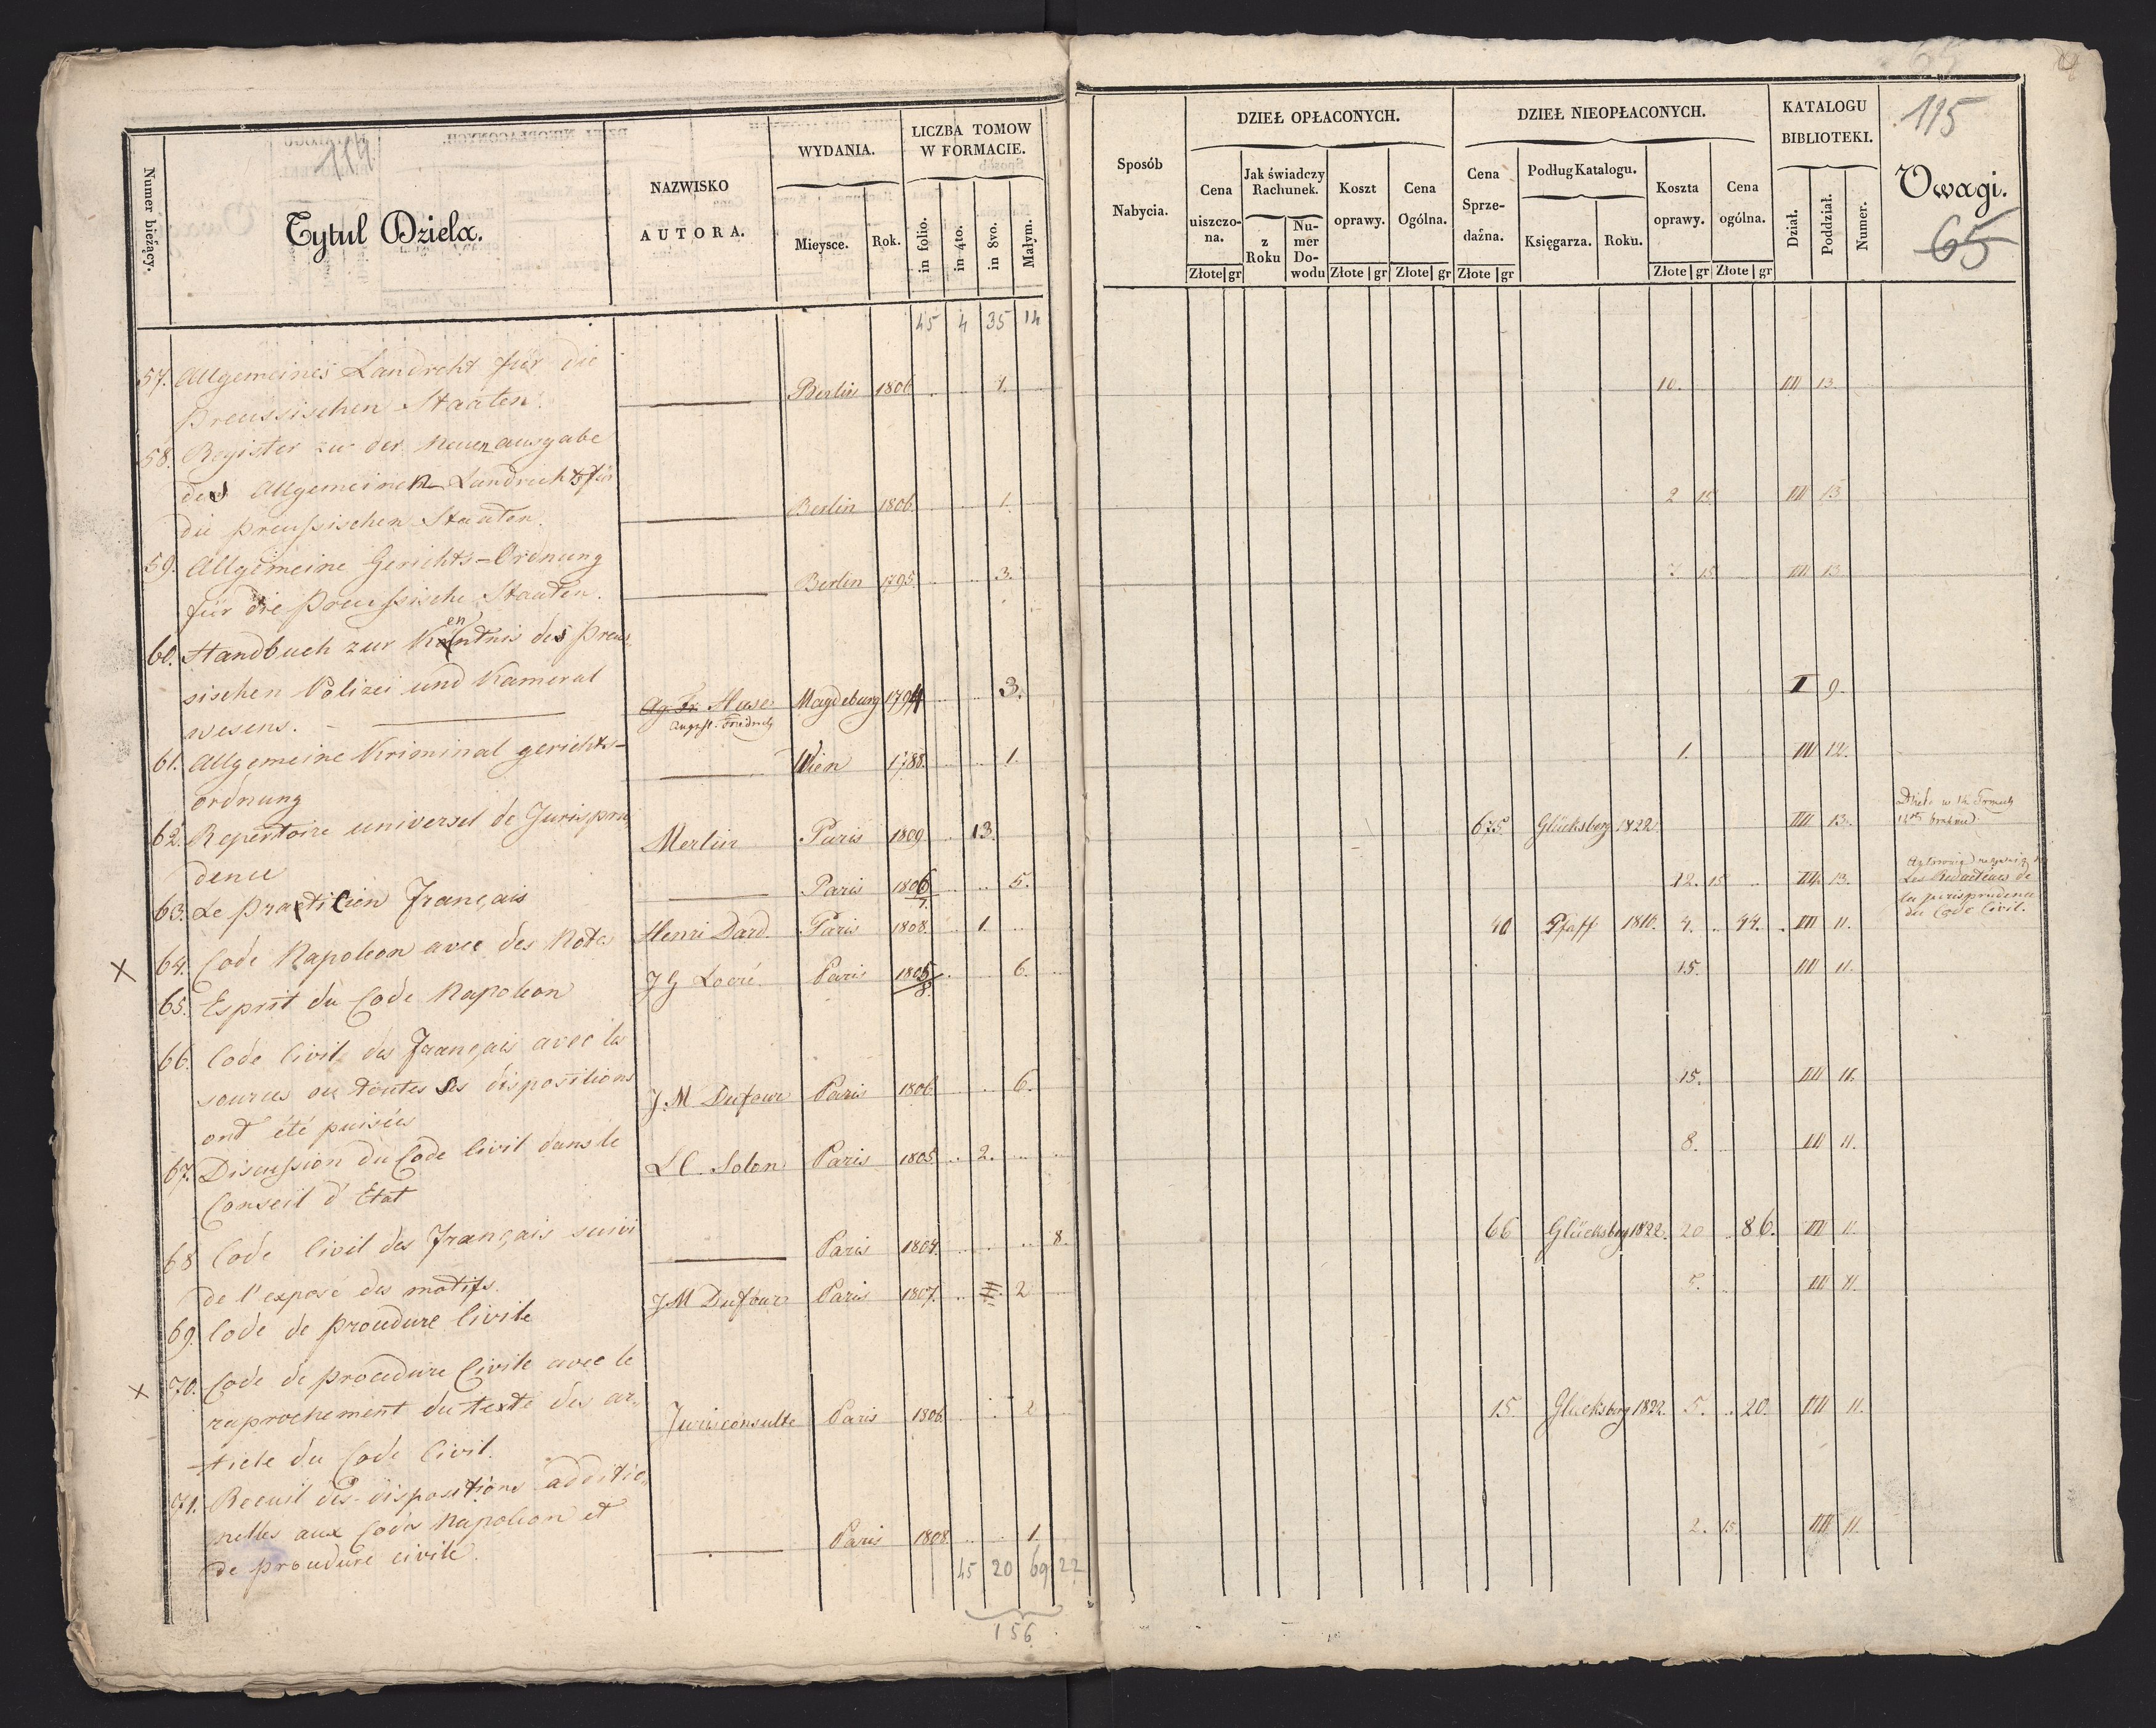 114.
Numer bieżący.
Tytuł Dzieła.
NAZWISKO
AUTORA.
WYDANIA.
Mieysce. Rok.
LICZBA TOMOW
W FORMACIE.
in folio. in 4to. in 8vo. Małym.
45 4 35 14
57. Allgemeines Landreht für die
Preussischen Staaten. Berlin 1806 4.
58. Register zu der Neuen ausgabe
des Allgemeinen Landrechts für
die preußischen Staaten. Berlin 1806. 1.
59. Allgemeine Gerichts-Ordnung
für die Preußische Staaten. Berlin 1795. 3.
60. Handbuch zur Kentnis des Preus
sischen Polizei und Kameral
wesens. Hase Magdeburg 1794 3.
August: Friedrich
61. Allgemeine Kriminal gerichts-
ordnung Wien 1788. 1.
62. Repertoire universel de Jurispru
dence Merlin Paris 1809. 13.
63. Le Praticien Français Paris 1806/7. 5.
X 64. Code Napoleon avec des Notes Henri Dard Paris 1808. 1.
65. Esprit du Code Napoleon J G Locré Paris 1805/8. 6.
66. Code Civil des Français avec les
sources ou toutes ses dispositions
ont été puisées J. M Dufour Paris 1806 6.
67. Discussion du Code Civil dans le
Conseil d'Etat L C. Solon Paris 1805 2.
68 Code Civil des Français suivi
de l'exposé des motifs. Paris 1804. 8.
69. Code de Procedure Civile J M Dufour Paris 1807. 2
X 70. Code de procedure Civile avec le
raprochement du texte des ar,,
ticle du Code Civil. Jurisconsulte Paris 1806. 2
71. Recuil des dispositions additio,,
nelles aux Codes Napoleon et
de procedure civile. Paris 1808. 1.
45 20 69 22
156
Sposób
Nabycia.
DZIEŁ OPŁACONYCH.
Cena
uiszczo-
na.
Złote gr
Jak świadczy
Rachunek.
z
Roku
Nu-
mer
Do-
wodu
Koszt
oprawy.
Złote gr
Cena
Ogólna.
Złote gr
DZIEŁ NIEOPŁACONYCH.
Cena
Sprze-
daźna.
Złote gr
Podług Katalogu.
Księgarza. Roku.
Koszta
oprawy.
Złote gr
Cena
ogólna.
Złote gr
KATALOGU
BIBLIOTEKI.
Dział. Poddział. Numer.
115
Uwagi.
65
10. III 13.
2 15 III 13
7. 15 III 13.
I 9.
1. III 12.
675. Glücksberg 1822. III 13.
12. 15 III 13. Les Redacteurs de
la jurisprudence
du Code Civil.
40 Pfaff 1810. 4. 44. III 11.
15. III 11.
15. III 11.
8. III 11.
66 Glücksberg 1822. 20 86. III 11.
5. III 11.
15. Glücksberg 1822. 5. 20. III 11.
2. 15. III 11.